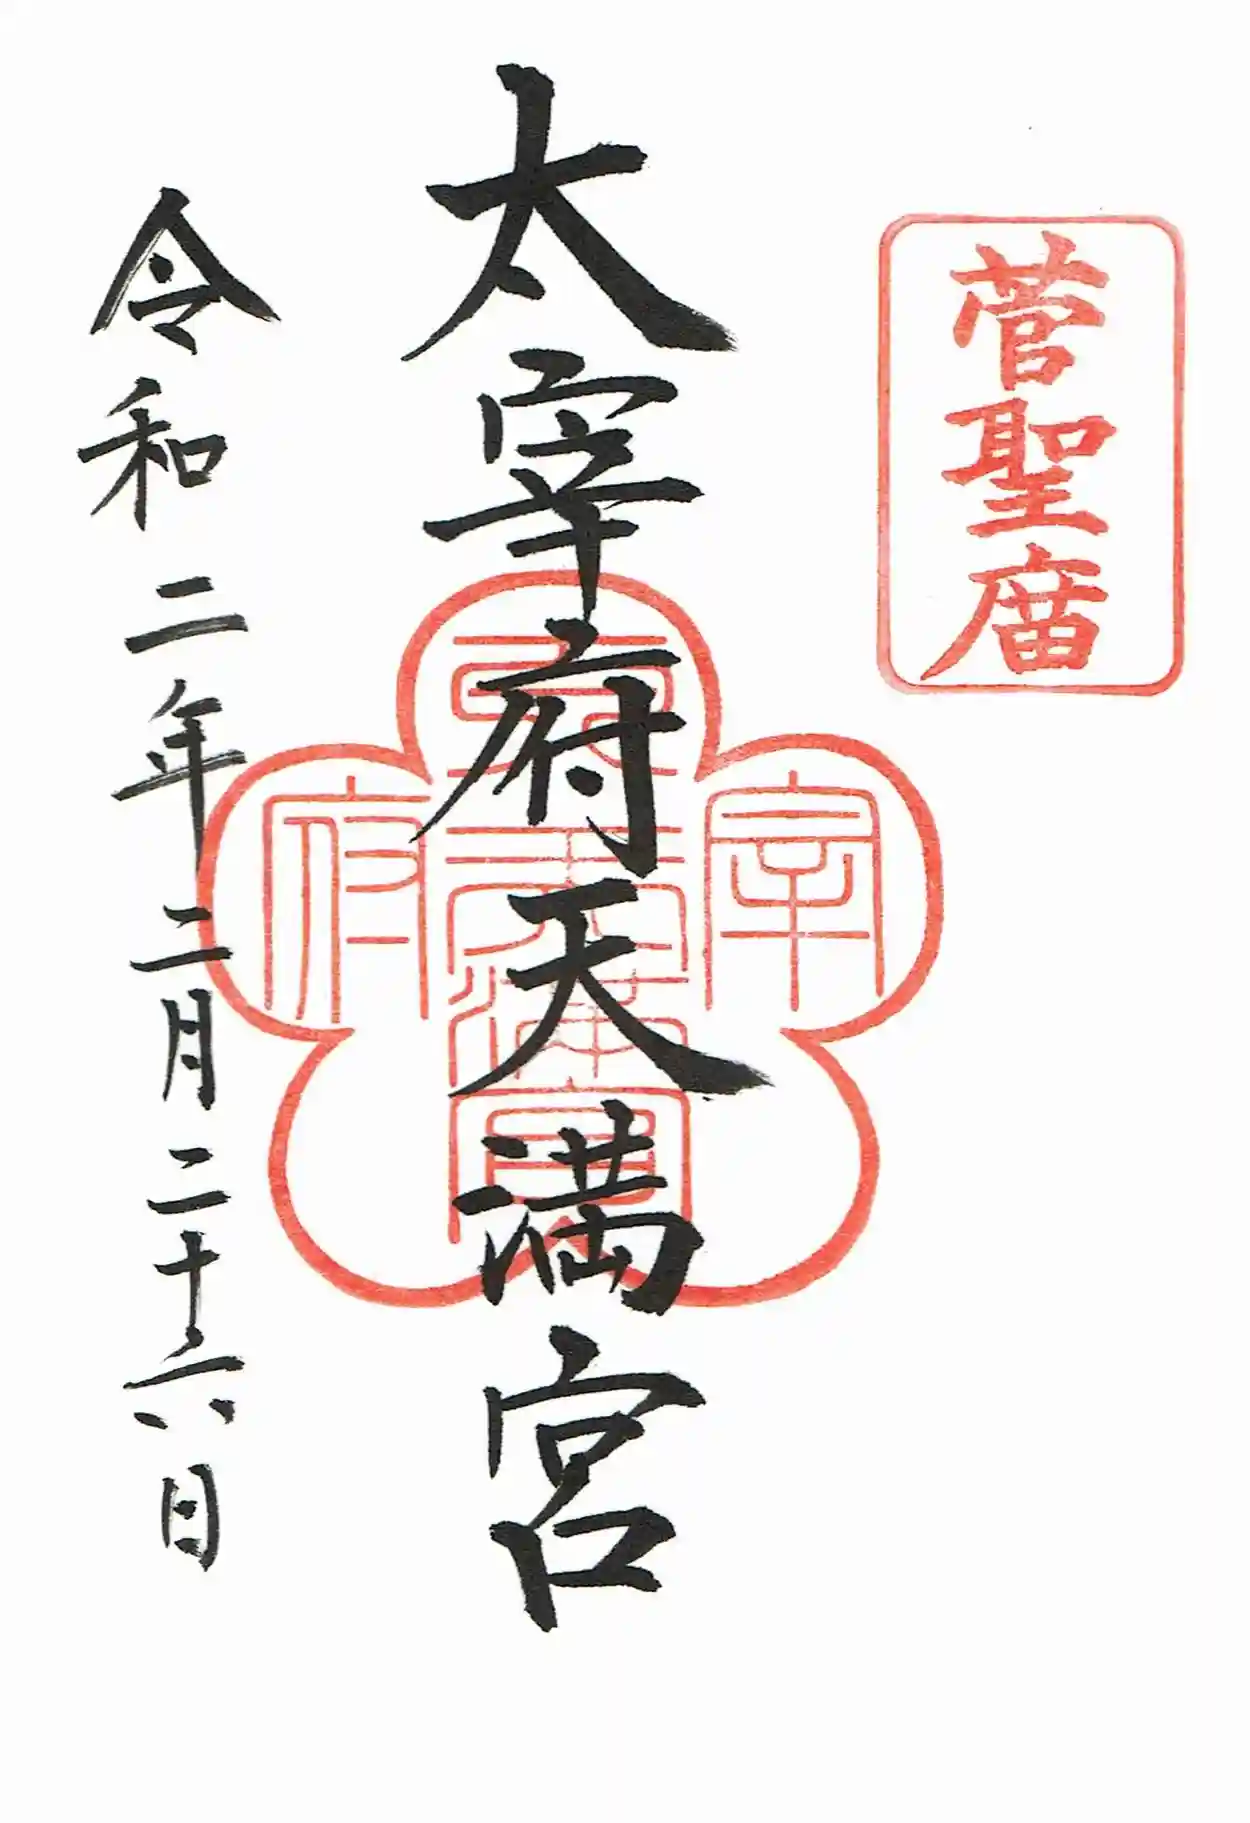 菅聖庿
太宰府天満宮
太宰府天満宮
令和二年二月二十六日